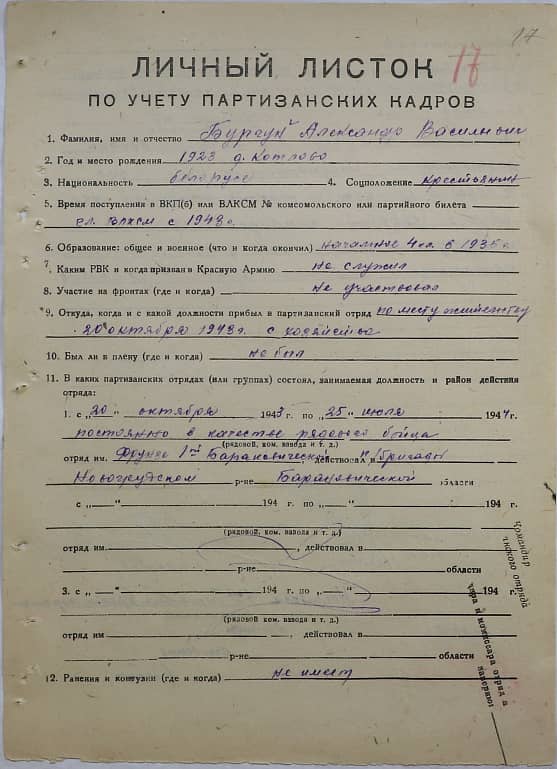 17
ЛИЧНЫЙ ЛИСТОК 17
ПО УЧЕТУ ПАРТИЗАНСКИХ КАДРОВ
1. Фамилия, имя и отчество Александр Васильевич
2. Год и место рождения 1923 д. Котлово
3. Национальность белорус 4. Соцположение крестьянин
5. Время поступления в ВКП(б) или ВЛКСМ № комсомольского или партийного билета
чл. ВЛКСМ с 1943 г.
6. Образование: общее и военное (что и когда окончил) начальное 4 кл. в 1936 г
7. Каким РВК и когда призван в Красную Армию не служил
8. Участие на фронтах (где и когда) не участвовал
9. Откуда, когда и с какой должности прибыл в партизанский отряд по месту жительству
20 октября 1943 г. с хозяйства
10. Был ли в плену (где и когда) не был
11. В каких партизанских отрядах (или группах) состоял, занимаемая должность и район действия
отряда:
1. с „20“ октября 1943 г. по „25“ июля 1944 г.
постоянно в качестве рядового бойца
(рядовой, ком. взвода и т. д.)
отряд им. Фрунзе 1ой Барановической бригады, действовал в
Новогрудском р-не Барановичской области
с „ “ 194 г. по „ “ 194 г.
(рядовой, ком. взвода и т. д.)
отряд им. , действовал в
р-не области
3. с „ “ 194 г. по „ “ 194 г.
(рядовой, ком. взвода и т. д.)
отряд им. , действовал в
р-не области
12. Ранения и контузии (где и когда) не имеет
Командир
нского отряда
ира и комиссара отряда